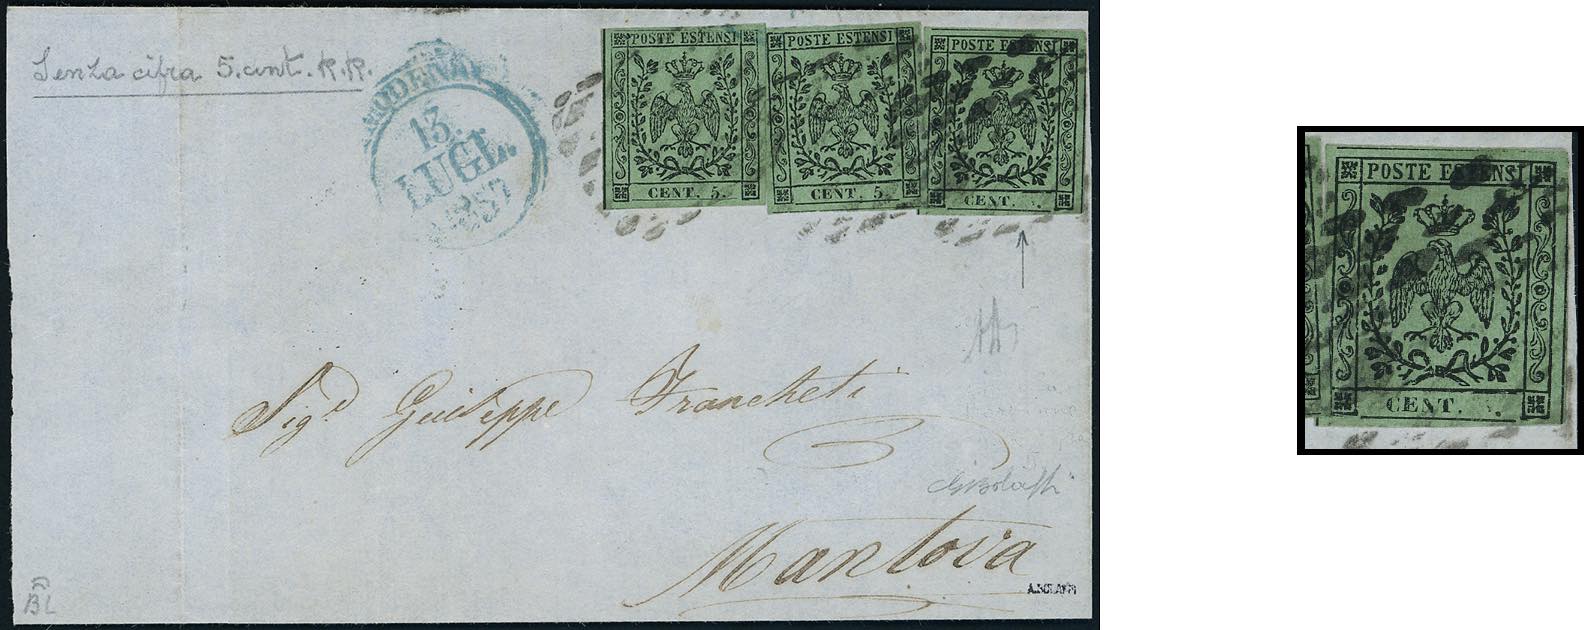 Senza cifra 5. cent. R.R.
MODENA
13.
LUGL.
57
POSTE ESTENSI
CENT. 5.
POSTE ESTENSI
CENT. 5.
POSTE ESTENSI
CENT. .
Sigr Giuseppe Francheti
Mantova
A.BOLAFFI
BL
POSTE ESTENSI
CENT. .